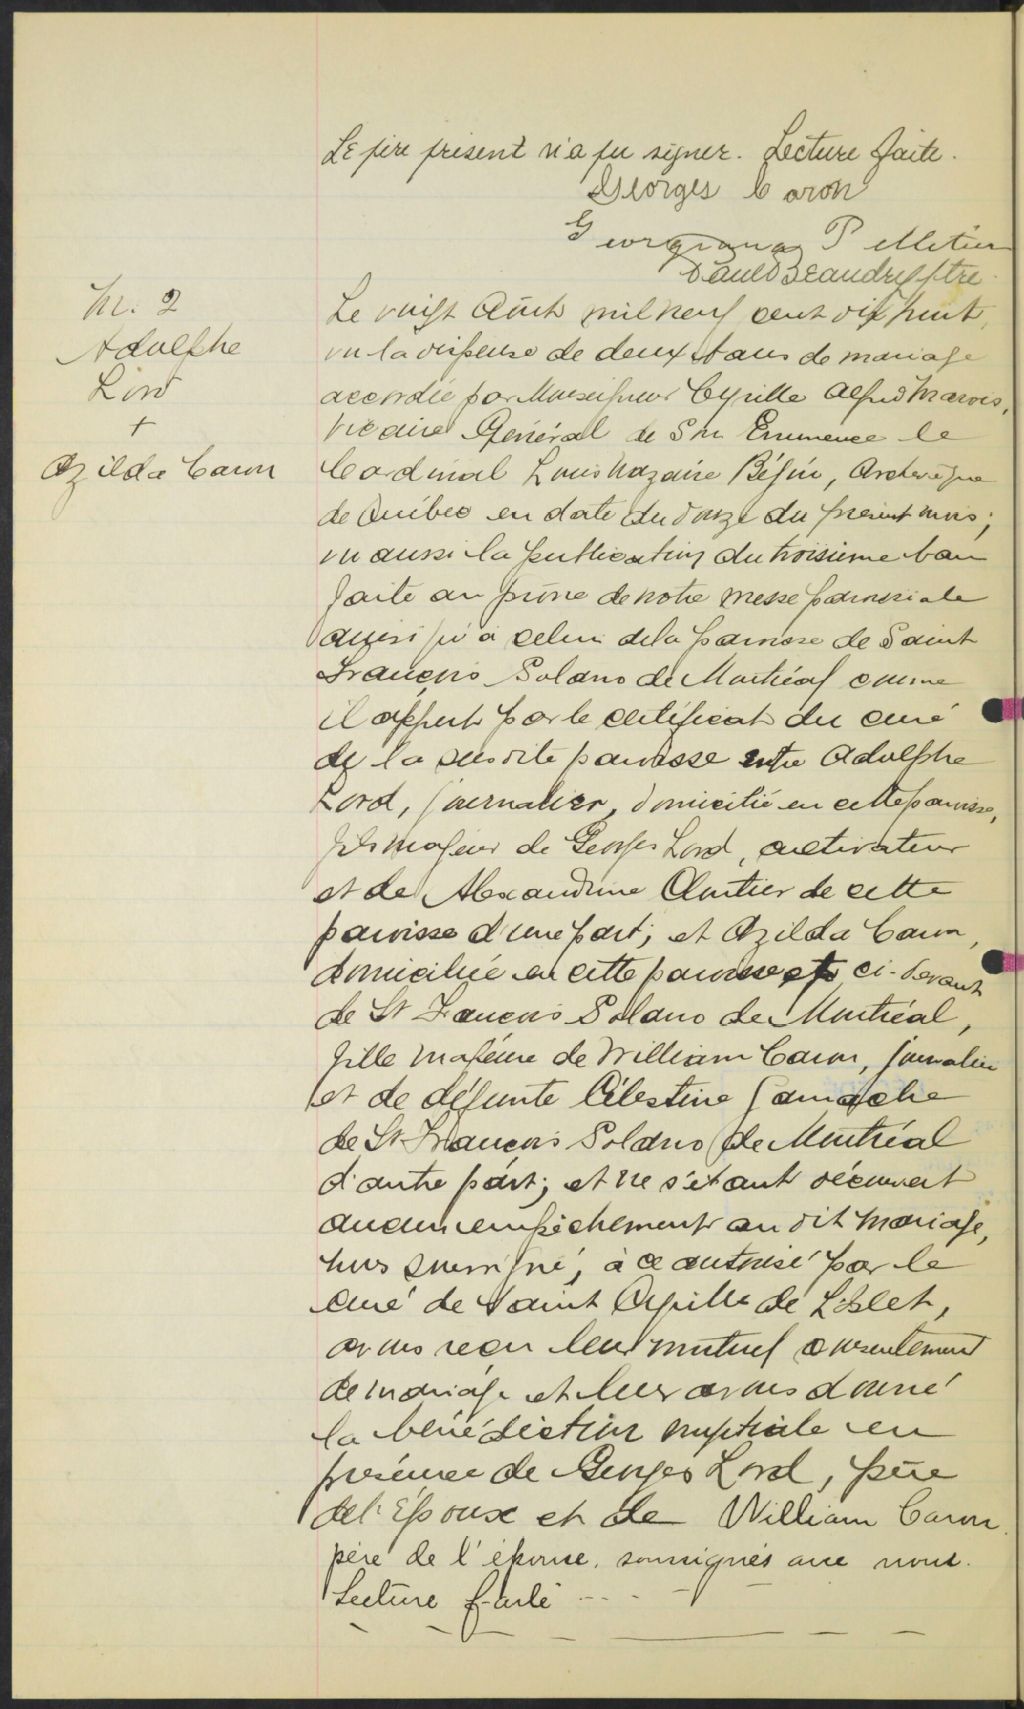 Le père présent n'a pu signer. Lecture faite.
Georges Caron
Georgianna Pelletier
Paul Beaudry ptre
M. 2
Adolphe
Lord
+
Azilda Caron
Le vingt Août mil neuf cent dix huit,
vu la dispense de deux bans de mariage
accordée par Monseigneur Cyrille Alfred Marois,
Vicaire Général de Son Eminence le
Cardinal Louis Nazaire Bégin, Archevêque
de Québec en date du douze du présent mois;
vu aussi la publication du troisième ban
faite au prône de notre messe paroissiale
ainsi qu'à celui de la paroisse de Saint
François Solano de Montréal comme
il appert par le certificat du curé
de la susdite paroisse entre Adolphe
Lord, journalier, domicilié en cette paroisse,
fils majeur de Georges Lord, cultivateur
et de Alexandrine Cloutier de cette
paroisse d'une part; et Azilda Caron,
domiciliée en cette paroisse et ci-devant
de St François Solano de Montréal,
fille majeure de William Caron, journalier
et de défunte Célestine Gamache
de St François Solano de Montréal
d'autre part; et ne s'étant découvert
aucun empêchement au dit mariage,
nous soussigné, à ce autorisé par le
curé de Saint Cyrille de L'Islet,
avons reçu leur mutuel consentement
de mariage et leur avons donné
la bénédiction nuptiale en
présence de Georges Lord, père
de l'époux et de William Caron
père de l'épouse, soussignés avec nous.
Lecture faite